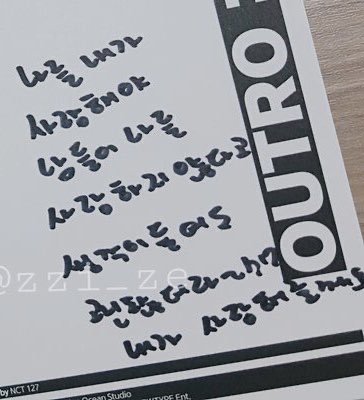 나를 내가
사랑해야
남들이 나를
사랑하지 않는다고
생각이 들어도
괜찮더라~ㅋㅋ
내가
OUTRO
@zzi_ze
by NCT 127
Ocean Studio
Ent.